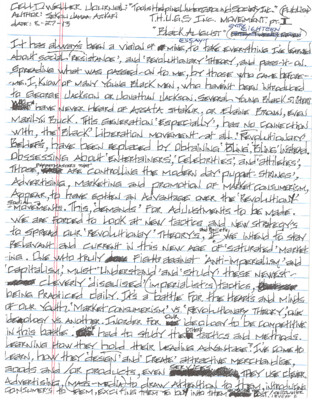 Cell Dweller Journal "Toward Enlightened Underground Society Inc."
Author: Sekou Jamaa Askari T.H.U.G.S. Inc. Movement. pt. I
Date: 8-27-19 "Black August" Eighteen
It has always been a vision of mine, to take everything I've learned
about social 'resistance', and 'revolutionary' theory, and pass-it-on
spreading what was passed-on to me, by those who came before
me. I, know of many young Black men, who haven't been introduced
to George Jackson or Jonathan Jackson, several young Black sisters
have never heard of Assata Shakur, or Elaine Brown, even
Marilyn Buck. This generation 'Especially', has no connection
with, the 'Black' Liberation movement at all. 'Revolutionary'
Beliefs, have been replaced by obtaining 'Bling Bling' instead,
obsessing about 'entertainers', 'celebrities', and 'athletes',
those, are controlling the modern day puppet strings',
Advertising, marketing and promotion of market consumerism,
appear, to have gotten an advantage over the 'Revolutionary'
movements. This, demands' for adjustments to be made.
We are forced to look at new tactics and new strategy's
to spread our 'revolutionary' theory's, if we intend to stay
relevant and current in this new age of 'saturated' market-
ing. One who truly fights against 'Anti-imperialism,' and
'Capitalism', must understand and study these newest-
cleverly 'disguised' imperialist's tactics,
being practiced daily. It's a battle for the hearts and minds
of our youth. 'Market Consumerism' vs 'Revolutionary Theory', one
ideology vs another. In order for our ideology to be competitive
in this battle. I had to study these tactics and methods.
Learning how they hold their leading advantage. I've come to
learn, how they design and create attractive merchandise,
goods and/or products, even services, they use clever
advertising, mass-media to draw attention to them, introducing
consumer's to them, exciting them to buy into them